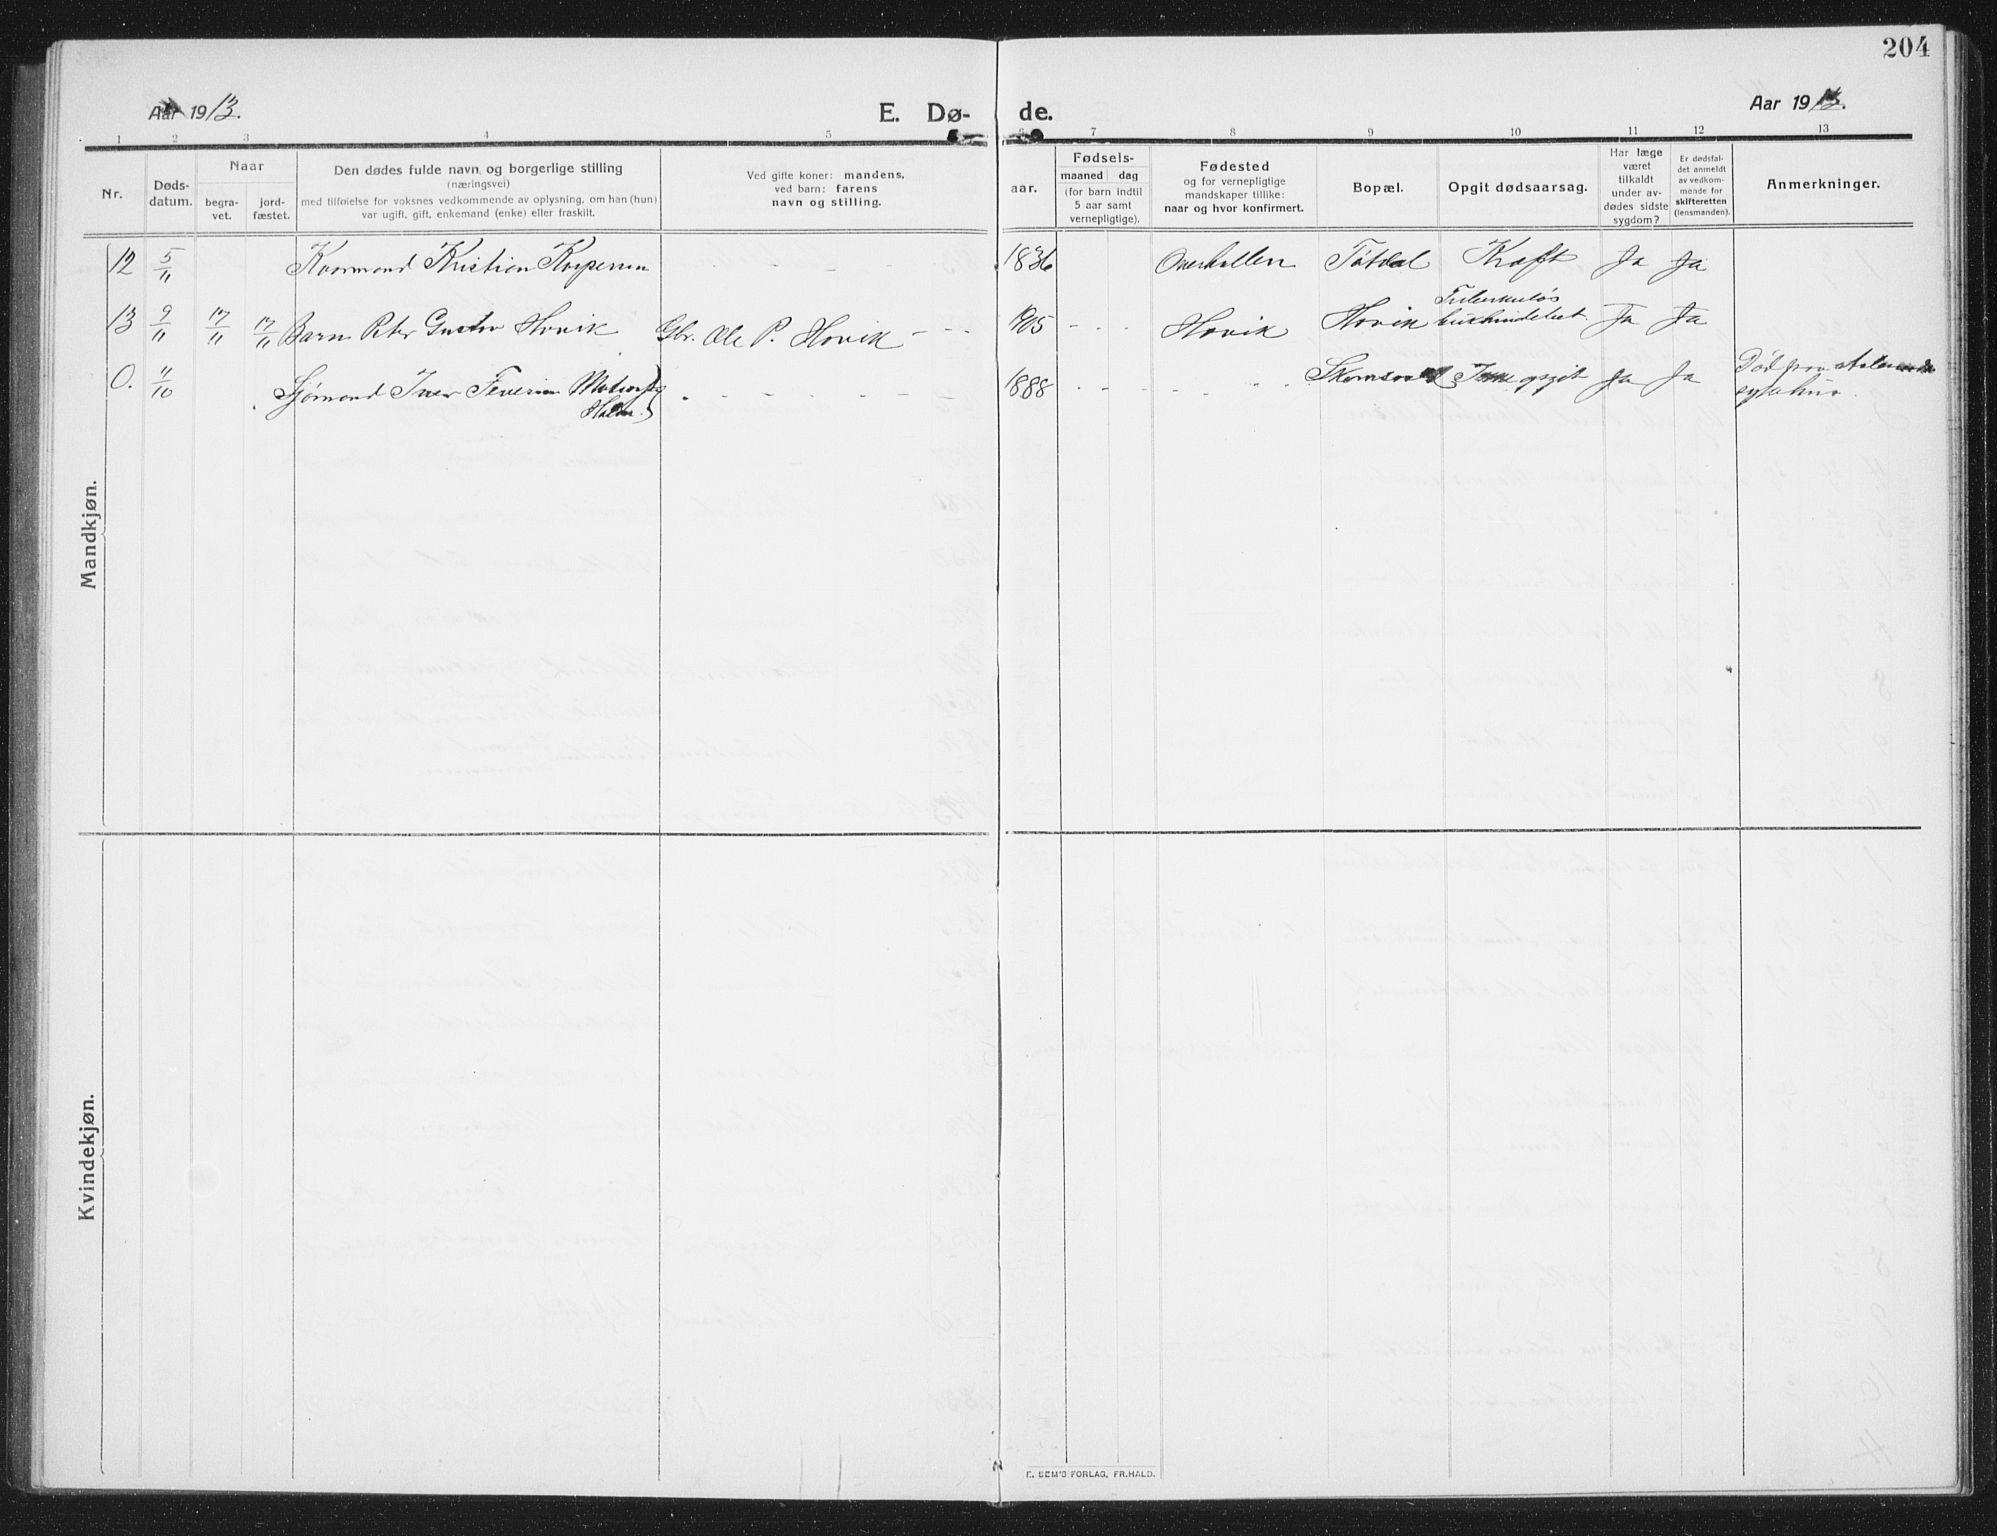 204
Aar 1913.
E. Dø- de.
Aar 1913.
1 2 3 4 5 6 7 8 9 10 11 12 13
Nr.
Døds-
datum.
Naar
begra-
vet.
jord-
fæstet.
Den dødes fulde navn og borgerlige stilling
(næringsvei)
med tilføielse for voksnes vedkommende av oplysning, om han (hun)
var ugift, gift, enkemand (enke) eller fraskilt.
Ved gifte koner: mandens,
ved barn: farens
navn og stilling.
aar.
Fødsels-
maaned dag
(for barn indtil
5 aar samt
vernepligtige).
Fødested
og for vernepligtige
mandskaper tillike:
naar og hvor konfirmert.
Bopæl.
Opgit dødsaarsag.
Har læge
været
tilkaldt
under av-
dødes sidste
sygdom?
Er dødsfal-
det anmeldt
av vedkom-
mende for
skifteretten
(lensmanden).
Anmerkninger.
12 5/11 Kaarmand Kristian 1836 Overhallen Kræft Ja Ja
13 9/11 17/11 17/11 Barn Peter Gustav Hovik Gbr. Ole P. Hovik 1905 Hovik Hovik Tuberkuløs Ja Ja
0. 11/10 Sjømand Iver Severin 1888 Ikke opgit Ja Ja Død paa
Holm sykehus
Mandkjøn.
Kvindekjøn.
E. SEM'S FORLAG, FR.HALD.